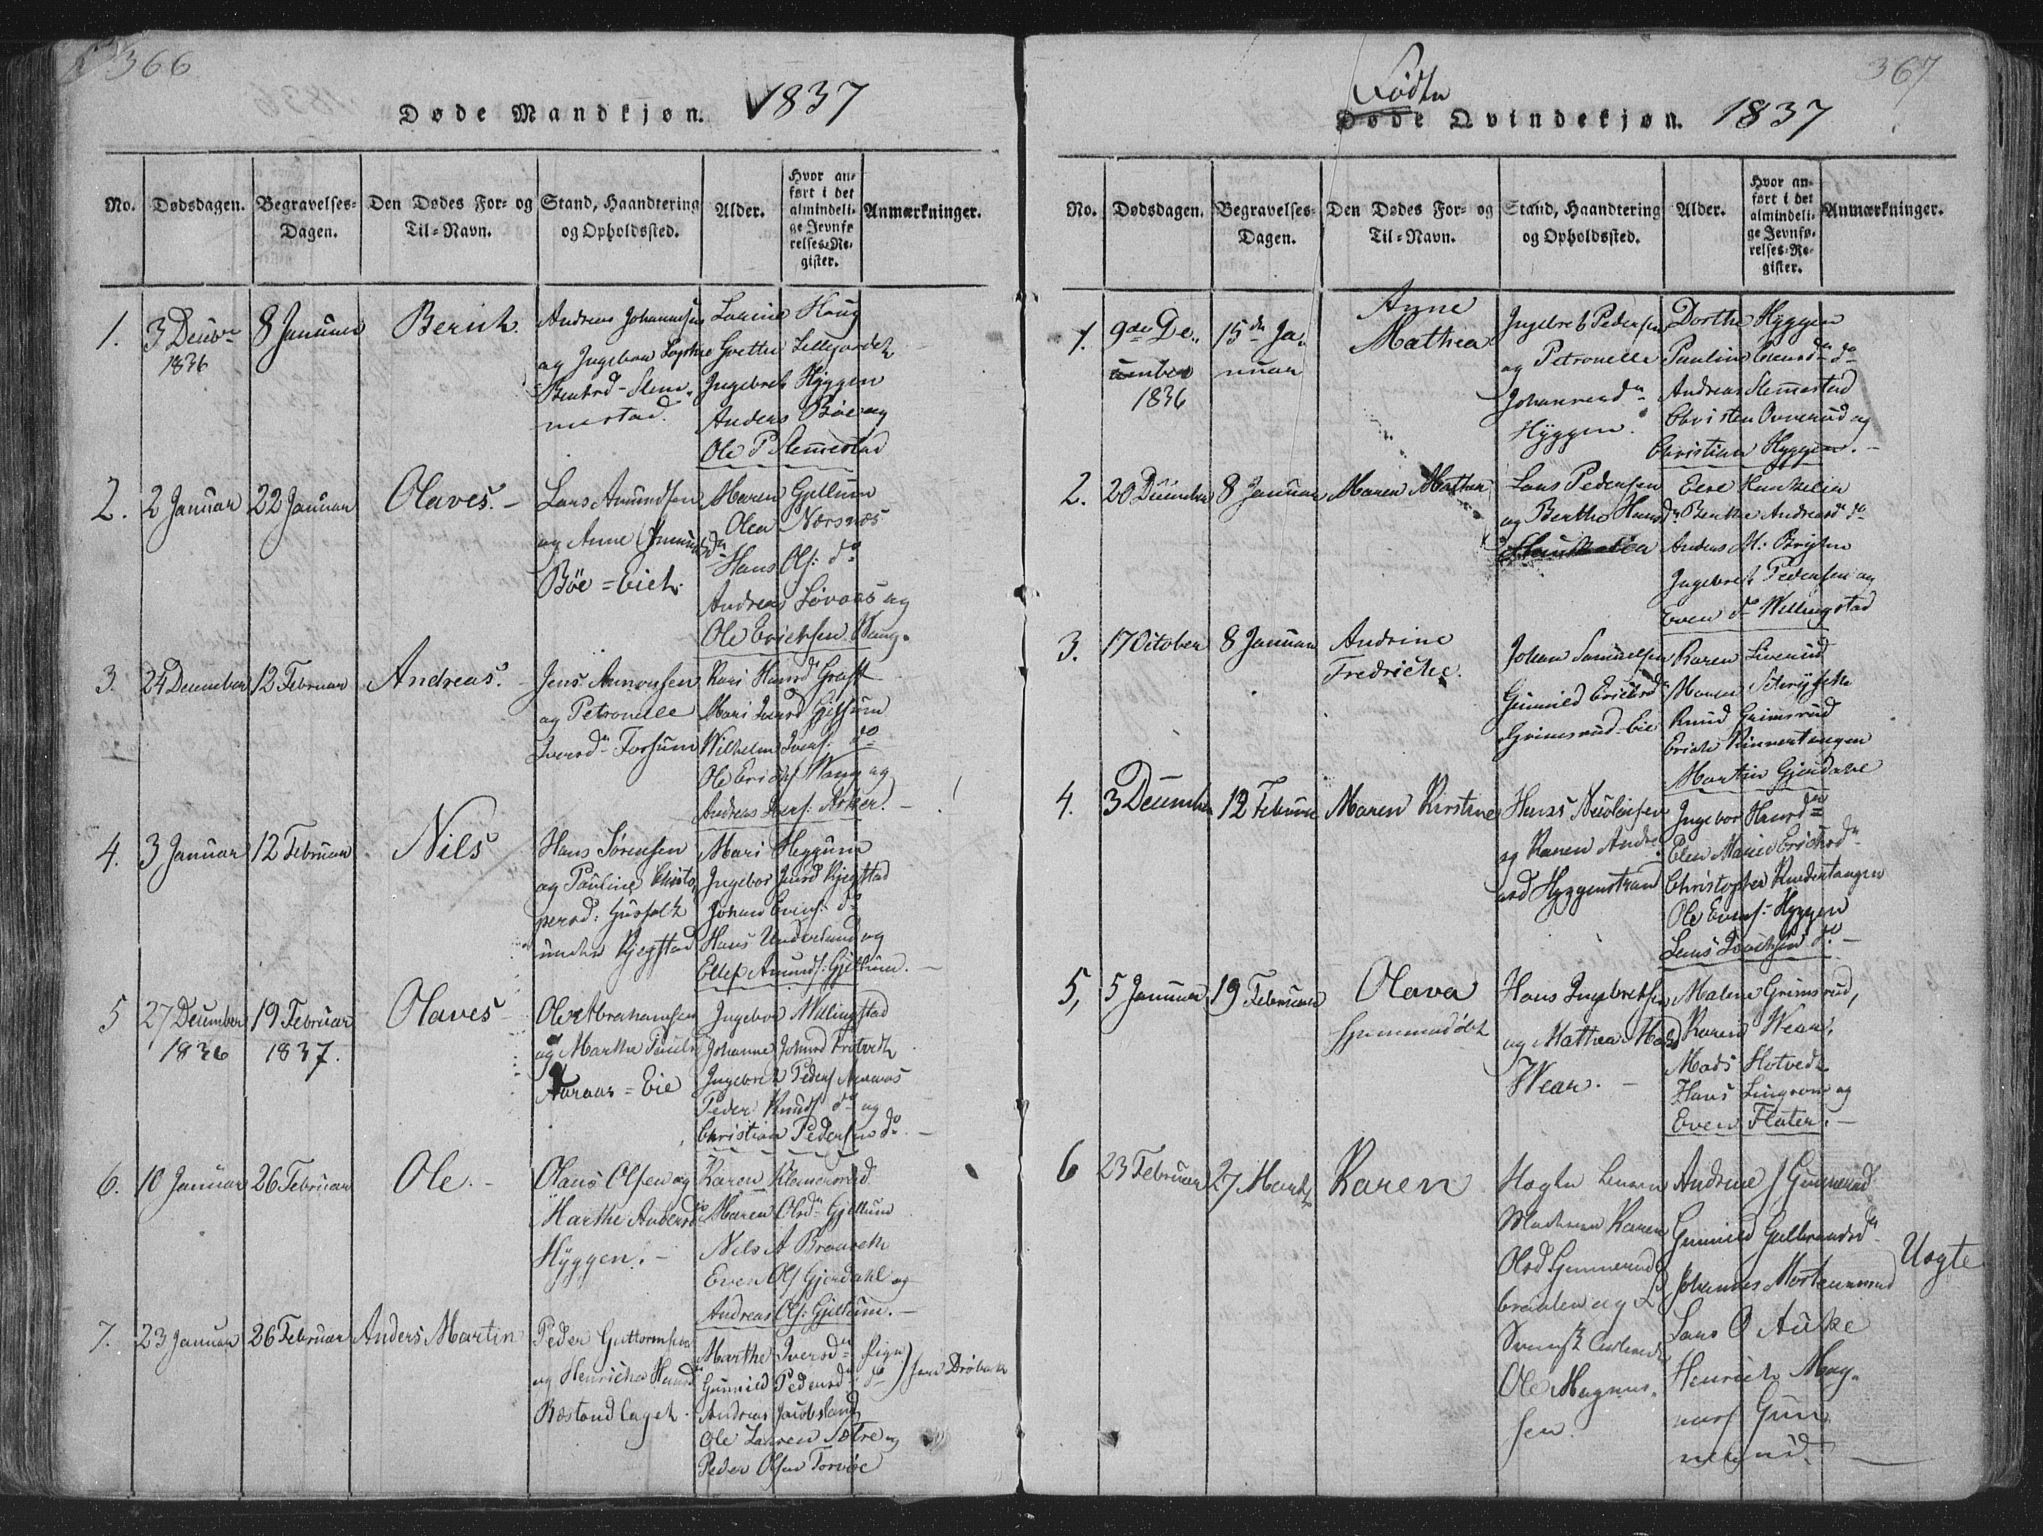 366
Døde Mandkjøn. 1837
No.
Dødsdagen.
Begravelses-
Dagen.
Den Dødes For- og
Til-Navn.
Stand, Haandtering
og Opholdssted.
Alder.
Hvor an-
ført i det
almindeli-
ge Jevnfø-
relses-Re-
gister.
Anmærkninger.
1.
3 Decbr
1836
8 Januar
Berich.
Andreas Johannesen
og Ingebor Sophie
Slem-
mestad.
Larine Haug
Grethe Lillegardet
Ingebret Hÿggen
Anders Böe og
Ole P Slemestad
2.
2 Januar
22 Januar
Olaves. -
Lars Amundsen
og Anne
Böe = Eiet.
Maren Gjellum
Olea Nærsnæs
Hans Ols: do
Andreas Lövaas og
Ole Erichsen Wang.
3.
24 December
12 Februar
Andreas. -
Jens
og Petronelle
Iversda Forsum
Kari
Mari Iversd Gjellum
Wilhelm Ivers. do
Ole Erichs Wang og
Andreas Ivers: Asker. -
4.
3 Januar
12 Februar
Nils
Hans Sörensen
og Pauline Christo,
persd:
under Kjegstad
Mari Heggum
Ingebor Jensd Kjegstad
Johan Evens: do
Hans Underlund og
Ellef Amunds: Gjellum. -
5
27 December
1836
19 Februar
1837.
Olaves -
Ole Abrahamsen
og Marthe
Aaraas = Eie
Ingebor Willingstad
Johanne
Ingebret Peders Aaraas
Peder Knuds do og
Christian Pedersen do. -
6.
10 Januar
26 Februar
Ole. -
Olaus Olsen og
Marthe Andersd
Hÿggen. -
Karen
Maren Olsdr Gjellum
Nils A Braaret
Even Ols Gjerdahl og
Andreas Ols: Gjellum. -
7.
23 Januar
26 Februar
Anders Martin
Peder Guttormsen
og Henriche Hansd
Bæstandlaget.
Marthe Iversda Pige
Gunnild Pedersd do } fra Dröbak
Andreas Jacobsland
Ole Larsen Sætre og
Peder Olsen Torvöe
367
Fødte
Døde Qvindekjøn. 1837
No.
Dødsdagen.
Begravelses-
Dagen.
Den Dødes For- og
Til-Navn.
Stand, Haandtering
og Opholdssted.
Alder.
Hvor an-
ført i det
almindeli-
ge Jevnfø-
relses-Re-
gister.
Anmærkninger.
1.
9de De,,
cember
1836
15de Ja,,
nuar
Anne
Mathea
Ingebret Pedersen
og Petronelle
Johannesda
Hÿggen.
Dorthe Hyggen
Pauline do
Andreas Slemestad
Christen Overud og
Christian Hyggen. -
2.
20 December
8 Januar
Maren Mathea
Lars Pedersen
og Berthe Hansda
Haukelia
Elie Haukelia
Berthe Andreasda do
Anders M:
Ingebret Pedersen og
Even do Willingstad
3.
17 October
8 Januar
Andrine
Fredriche.
Johan Samuelsen
Gunnild Erichsda
Grimsrud-Eie
Karen Liverud
Maren
Knud Grimsrud
Erich Kinnertangen
Martin Gjerdahl
4.
3 December
12 Februar
Maren Kirstine
Hans Nicolaisen
og Karen Andre,
asd Hyggenstrand
Ingebor Hansda
Elen Marie Erichsda
Christopher Kindertangen
Ole Evens: Hyggen
Lars do. -
5,
5 Januar
19 Februar
Olava
hjemmedöbt
Hans Ingebretsen
og Mathea Mads
Wear. -
Malene Grimsrud,
Karen Wear,
Mads Hotvedt
Hans Lingsom og
Even Flater. -
6
23 Februar
27 Marts
Karen
Karen
Olsd Gunnerud
Ole Magnus,
sen.
Andrine Gunnerud
Gunnild Gulbrandsda
Johannes Mortensrud
Lars O Auke
Henrich Mag,
nus Gun
nerud. -
Uægte